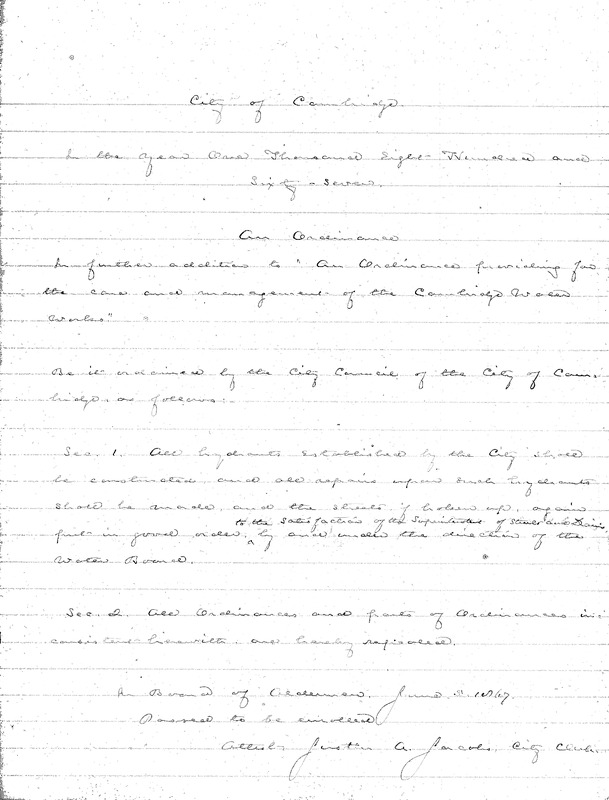 City of Cambridge
In the Year One Thousand Eight Hundred and
Sixty-Seven.
An Ordinance
In further addition to "An Ordinance providing for
the care and management of the Cambridge Water
Works"
Be it ordained by the City Council of the City of Cam-
bridge, as follows:
Sec. 1. All hydrants established by the City shall
be constructed and all repairs upon such hydrants
shall be made, and the streets if broken up, again
to the satisfaction of the Superintendent of Streets and Drains
put in good order, by and under the direction of the
Water Board.
Sec. 2. All Ordinances and parts of Ordinances in-
consistent herewith are hereby repealed.
In Board of Aldermen, June 1867.
Passed to be enrolled
Attest. Justin A. Jacobs, City Clerk.